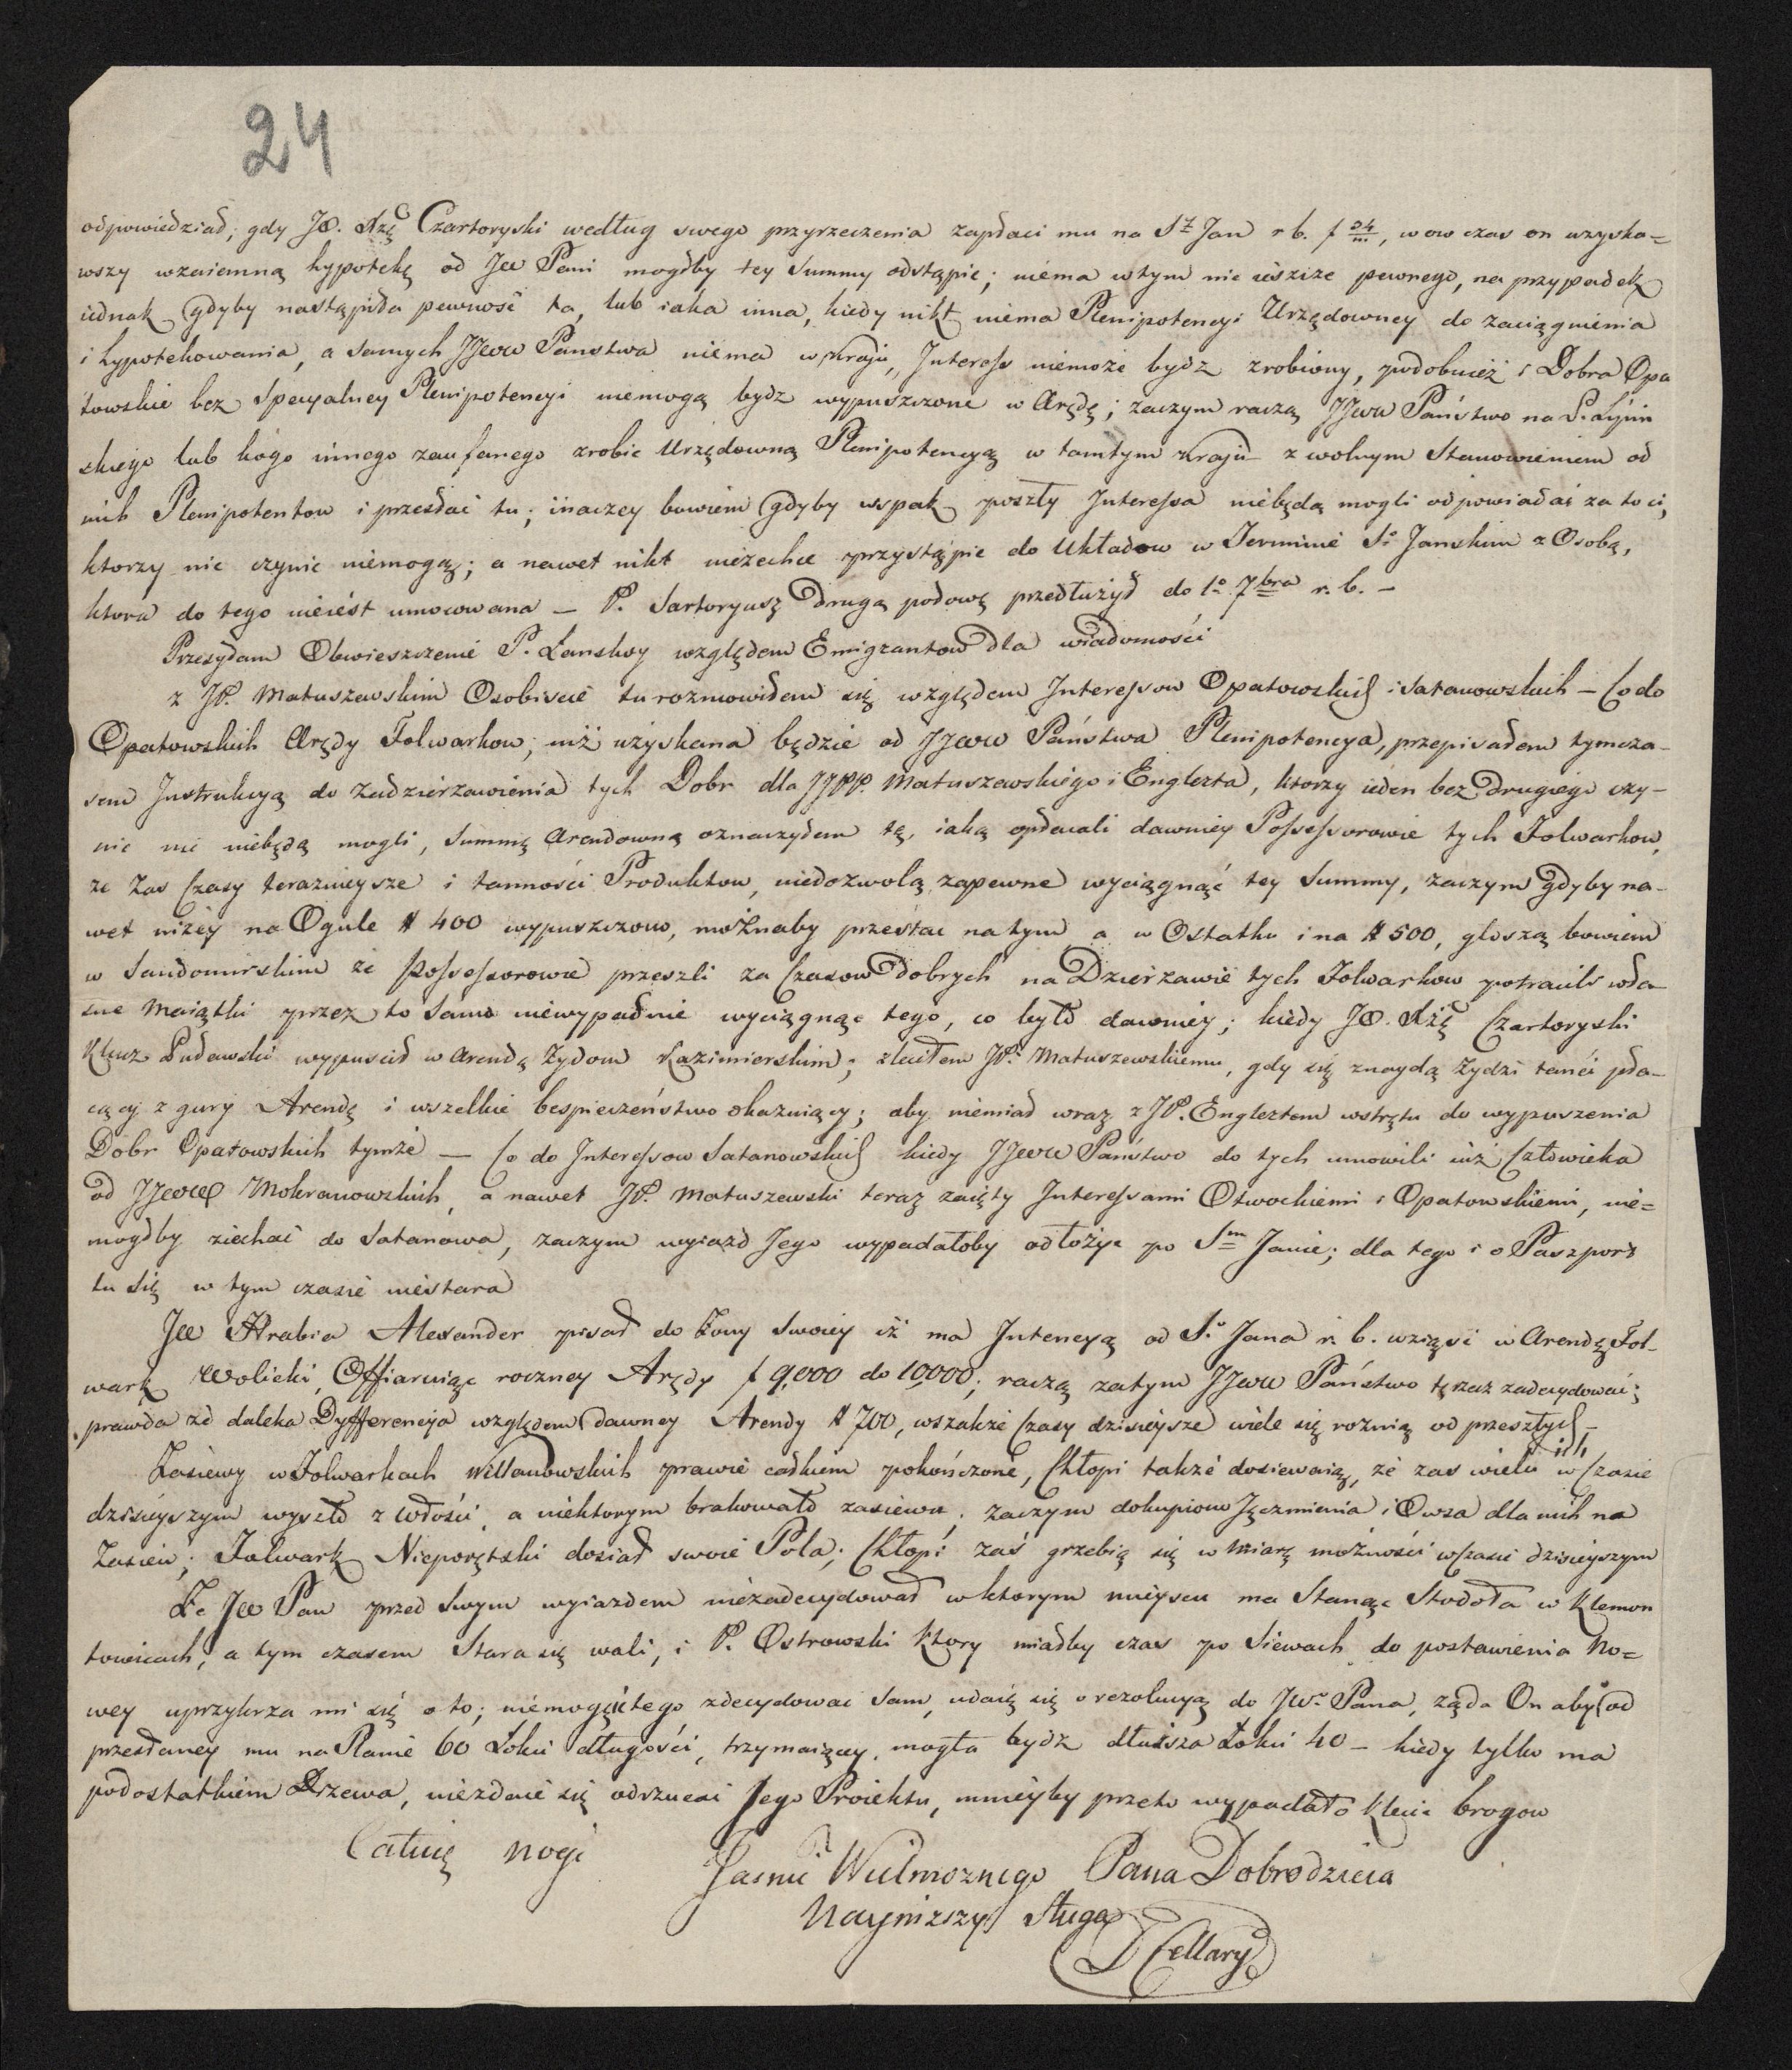 24
odpowiedział, gdy JO. Xżę Czartoryski według swego przyrzeczenia zapłaci mu na St Jan r b. f 54/m, wow czas on uzyska=
wszy wzaiemną hypotekę od JW Pani mogłby tey Summy odstąpić; niema w tym nic ieszcze pewnego, na przypadek
iednak gdyby nastąpiła pewność ta, lub iaka inna, kiedy nikt niema Plenipotencyi Urzędowney do zaciągnienia
i hypotekowania, a samych JJWW Panstwa niema w kraju, Interess niemoże bydz zrobiony, podobnież i Dobra Opa
towskie bez Specyalney Plenipotencyi niemogą bydz wypuszczone w Arędę; zaczym raczą JJWW Państwo na P.
skiego lub kogo innego zaufanego zrobić Urzędowną Plenipotencyą w tamtym kraju z wolnym Stanowieniem od
nich Plenipotentow i przesłać tu; inaczey bowiem gdyby wspak poszły Interessa niebędą mogli odpowiadać za to ci,
ktorzy nic czynic niemogą; a nawet nikt niezechce przystąpic do Układow w Terminie So Janskim z Osobą,
ktora do tego nieiest umocowana — P. Sartoryusz drugą połowę przedłużył do 1o 7bra r. b. —
Przesyłam Obwieszczenie P. Lanskoy względem Emigrantow dla wiadomości
z JP. Matuszewskim Osobiscie tu rozmowiłem się względem Interessow Opatowskich i Satanowskich — Co do
Opatowskich Arędy Folwarkow, niż uzyskana będzie od JJWW Państwa Plenipotencya, przepisałem tymcza-
sem Instrukcyą do Zadzierzawienia tych Dobr dla JJPP. Matuszewskiego i Englerta, ktorzy ieden bez drugiego czy-
nic nic niebędą mogli, Summę Arendowną oznaczyłem tę, iaką opłacali dawniey Possessorowie tych Folwarkow,
ze zas Czasy teraznieysze i tanności Produktow, niedozwolą zapewne wyciągnąć tey Summy, zaczym gdyby na-
wet niżey na Ogule # 400 wypuszczono, możnaby przestac na tym a w Ostatku i na # 500, głoszą bowiem
w Sandomirskim że Possessorowie przeszli za Czasow dobrych na Dzierzawie tych Folwarkow potracili wła-
sne Maiątki przez to samo niewypadnie wyciągnąc tego, co było dawniey; kiedy JO. Xżę Czartoryski
Klucz Puławski wypuscił w Arendę Zydom Kazimierskim; zleciłem JPu Matuszewskiemu, gdy się znaydą Zydzi tanći pła-
cący z gury Arendę i wszelkie bespieczeństwo okazuiący; aby niemiał wraz z JP. Englertem wstrętu do wypuszenia
Dobr Opatowskich tymże — Co do Interessow Satanowskich kiedy JJWW Państwo do tych umowili iuż Człowieka
od JJWW Mokranowskich, a nawet JP. Matuszewski teraz zaięty Interessami Otwockiemi i Opatowskiemi, nie=
mogłby ziechać do Satanowa, zaczym wyiazd Jego wypadałoby odłożyc po Sm Janie; dla tego i o Paszport
tu się w tym czasie niestara
JW Hrabia Alexander pisał do Zony Swoiey iż ma Intencyą od So Jana r. b. wziąść w Arendę Fol-
wark Wolicki, Offiaruiąc roczney Arędy f 9,000 do 10,000; raczą zatym JJWW Państwo tę rzecz zadecydować;
prawda że daleka Dyfferencya względem dawney Arendy # 700, wszakże Czasy dzisieysze wiele się roznią od przeszłych —
Zasiewy w Folwarkach Willanowskich prawie całkiem pokończone, Chłopi także dosiewaią, że zas wielu ich w Czasie
dzisieyszym wyszło z włości, a niektorym brakowało zasiewu, zaczym dokupiono Jęczmienia i Owsa dla nich na
Zasiew; Folwark Nieporętski dosiał swoie Pola; Chłopi zaś grzebią się w Miarę możności w Czasie dzisieyszym
Że JW Pan przed Swym wyiazdem niezadecydował w ktorym mieyscu ma Stanąc Stodoła w Klemon
towicach, a tym czasem Stara się wali, i P. Ostrowski ktory miałby czas po Siewach do postawienia No=
wey uprzykrza mi się o to; niemogąc tego zdecydowac Sam, udaię się o rezolucyą do JWo Pana, żąda On aby od
przesłaney mu na Planie 60 Łokci długości, trzymaiącey, mogła bydz dłuższa Łokci 40 — kiedy tylko ma
podostatkiem Drzewa, niezdaie się odrzucać Jego Proiektu, mnieyby przeto wypadało klecic brogow
Całuię nogi
Jasnie Wielmoznego Pana Dobrodzieia
Nayniższy Sługa
D Cellary